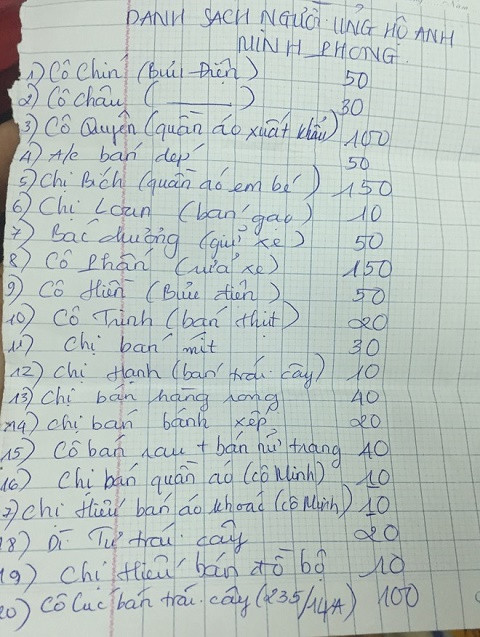 DANH SÁCH NGƯỜI ỦNG HỘ ANH
MINH PHONG.
1) Cô Chín (Bưu Điện) 50
2) Cô Châu ( ——— ) 30
3) Cô Quyên (quần áo xuất khẩu) 100
4) A/e bán dép 50
5) Chị Bích (quần áo em bé) 150
6) Chị Loan (bán gạo) 10
7) Bác dưỡng (giữ xe) 50
8) Cô Phấn (rửa xe) 150
9) Cô Hiền (Bưu điện) 50
10) Cô Trinh (bán thịt) 20
11) Chị bán mít 30
12) Chị Hạnh (bán trái cây) 10
13) Chị bán hàng rong 40
14) Chị bán bánh xếp 20
15) Cô bán rau + bán nữ trang 40
16) Chị bán quần áo (cô Minh) 10
7) Chị Hiếu bán áo khoác (cô Minh) 10
18) Dì Tư trái cây 20
19) Chị Hiếu bán đồ bộ 10
20) Cô Cúc bán trái cây (235/14A) 100